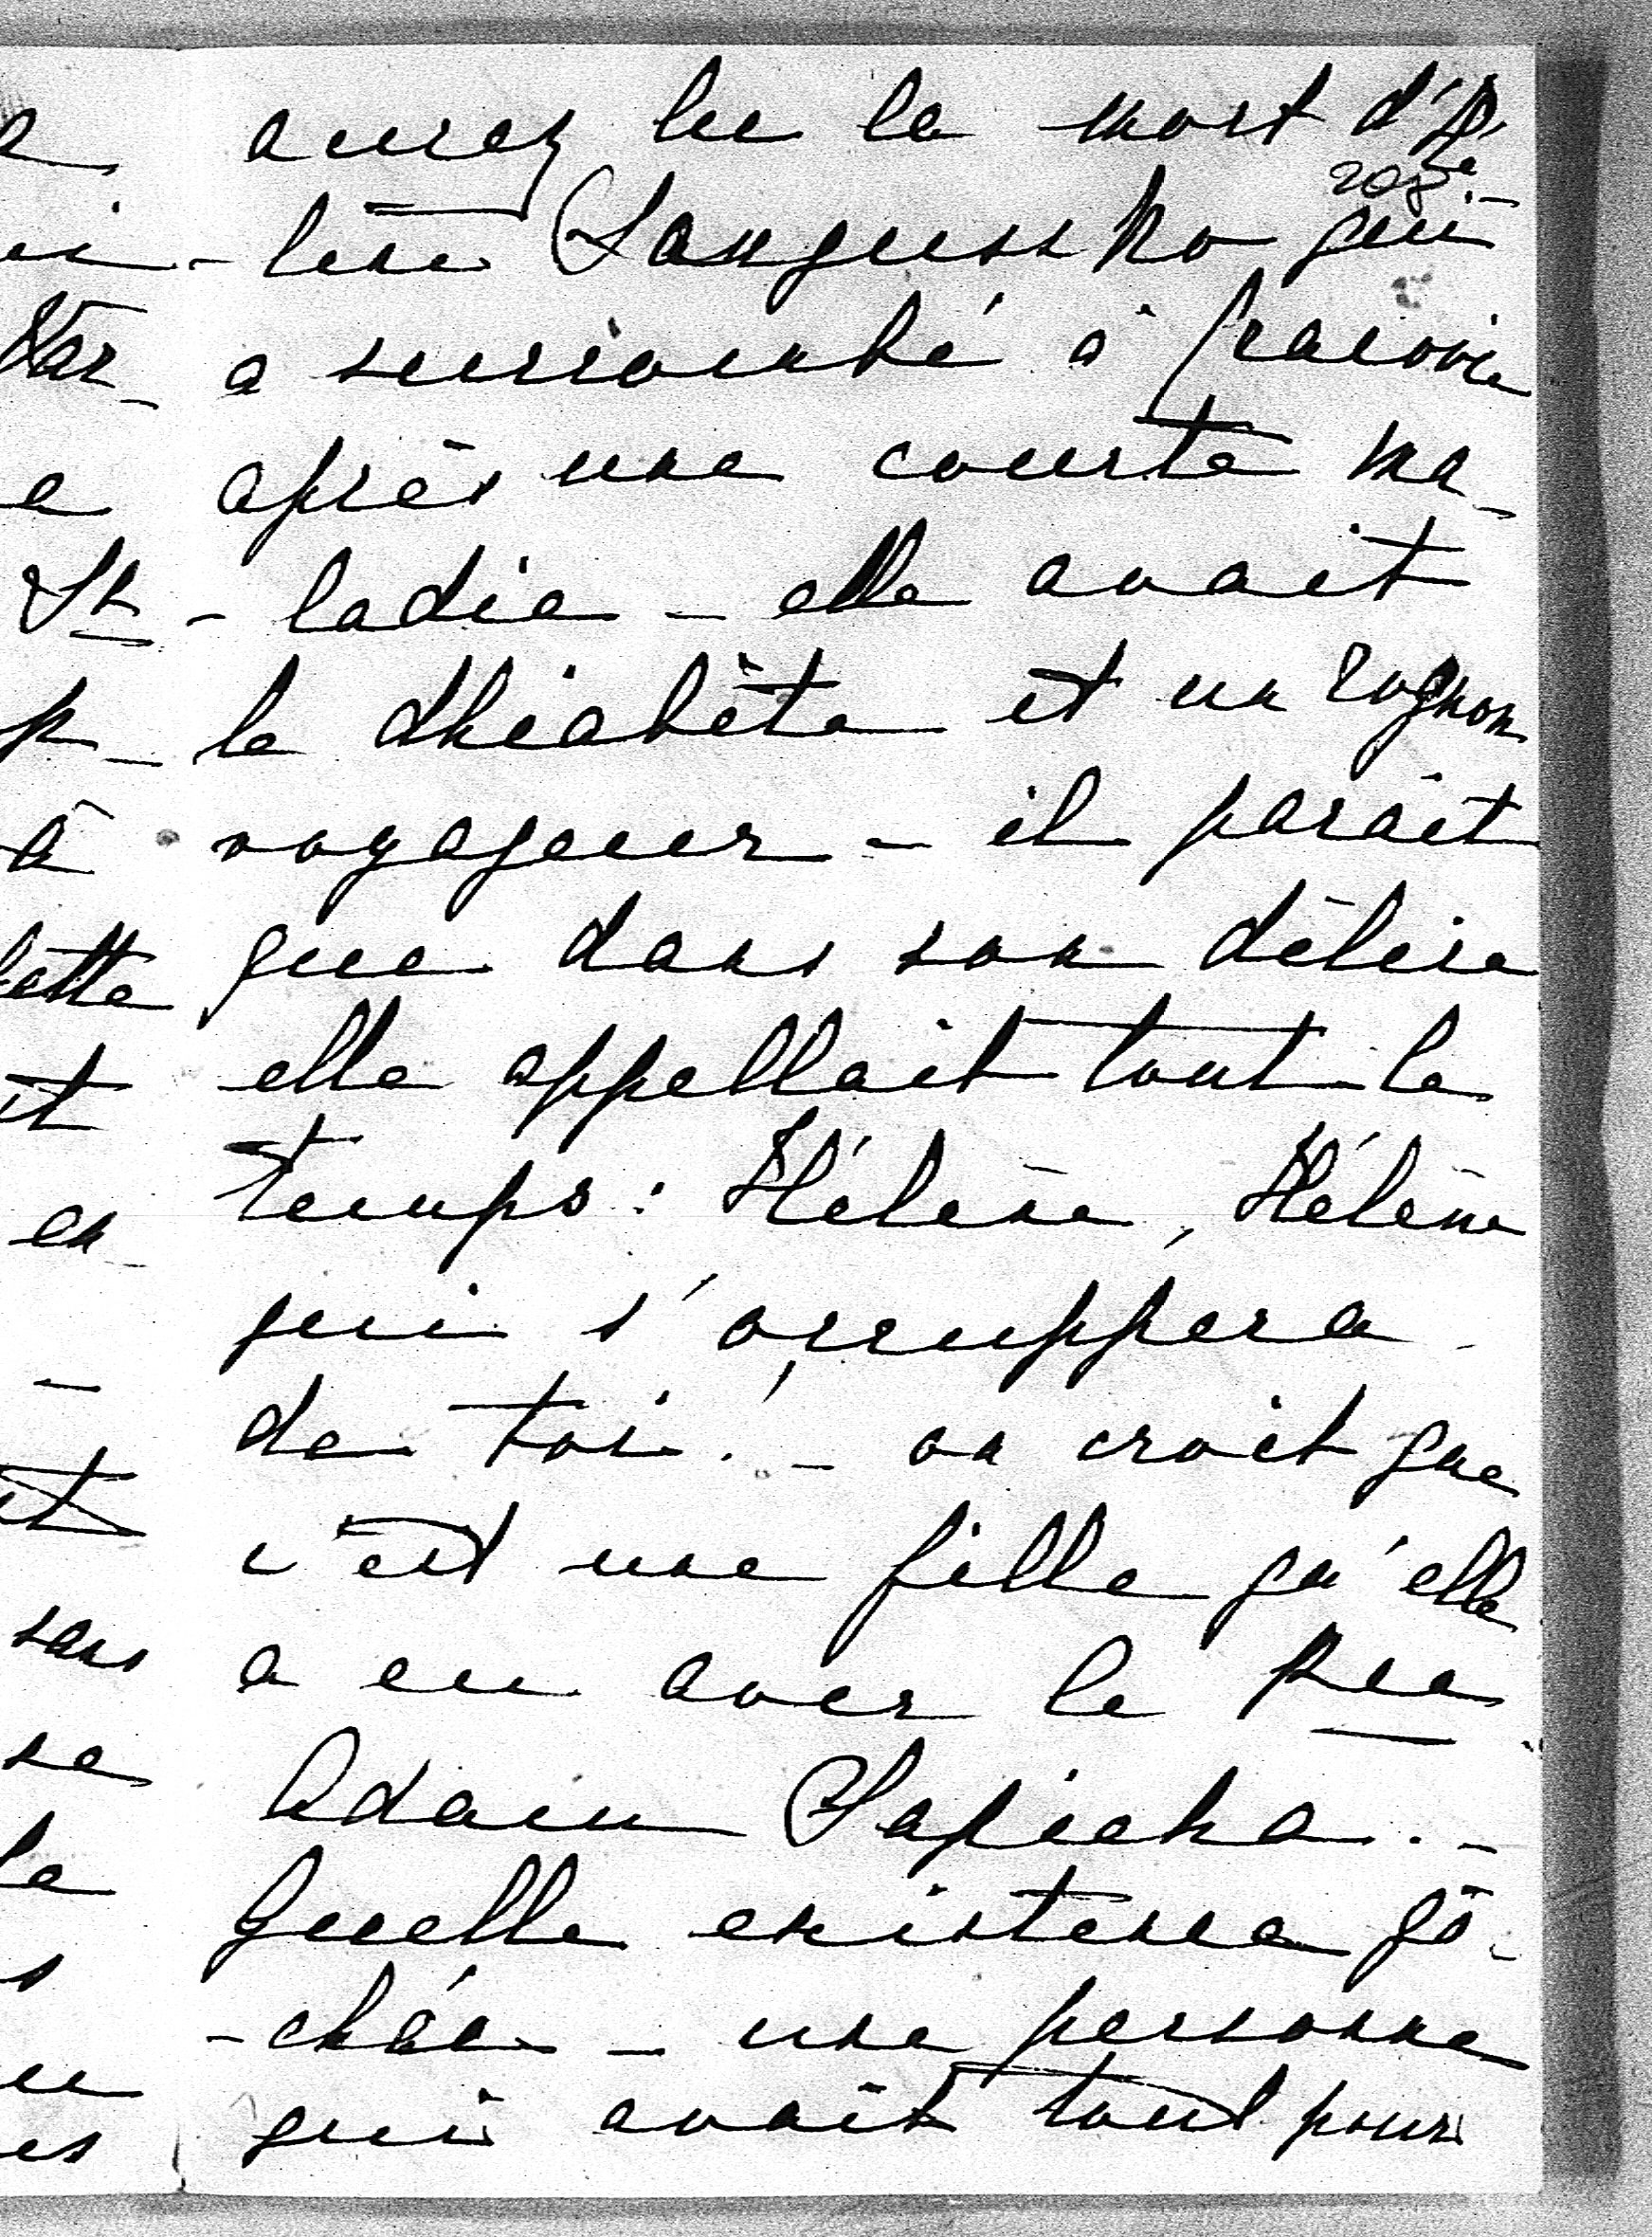 aurez lu la mort d'Hé
208.
-lène Sangussko qui
a succombé à Cracovie
après une courte ma-
-ladie - elle avait
le dhiabète et un rognon
voyageur - il parait
que dans son délire
elle appellait tout le
temps : Hélène, Hélène
qui s'occuppera
de toi! - on croit que
c'est une fille qu'elle
a eu avec le Pce
Adam Sapieha. -
Quelle existence gâ-
-chée - une personne
qui avait tout pour